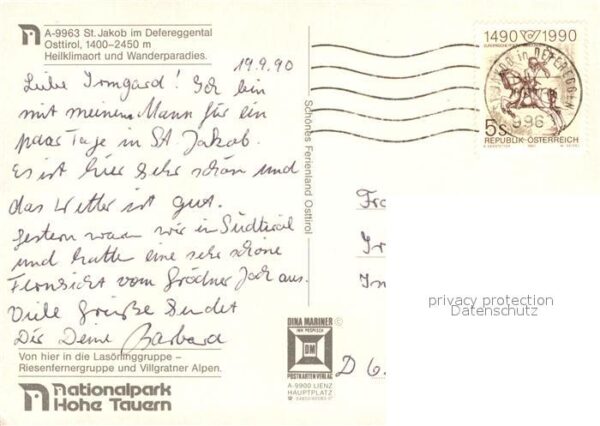 A-9963 St. Jakob im Defereggental
Osttirol, 1400–2450 m
Heilklimaort und Wanderparadies.
19.9.90
Liebe Irmgard! Ich bin
mit meinem Mann für ein
paar Tage in St. Jakob.
Es ist hier sehr schön und
das Wetter ist gut.
Gestern waren wir in Südtirol
und hatten eine sehr schöne
Fernsicht vom Grödner Joch aus.
Viele Grüße sendet
Dir Deine Barbara
Von hier in die Lasörlinggruppe –
Riesenfernergruppe und Villgratner Alpen.
Nationalpark
Hohe Tauern
Schönes Ferienland Osttirol
DINA MARINER ©
DM
POSTKARTENVERLAG
A-9900 LIENZ
HAUPTPLATZ
1490 1990
5s
REPUBLIK ÖSTERREICH
ST. JAKOB in DEFEREGGEN
996
Fr
Ir
In
D 6.
privacy protection
Datenschutz